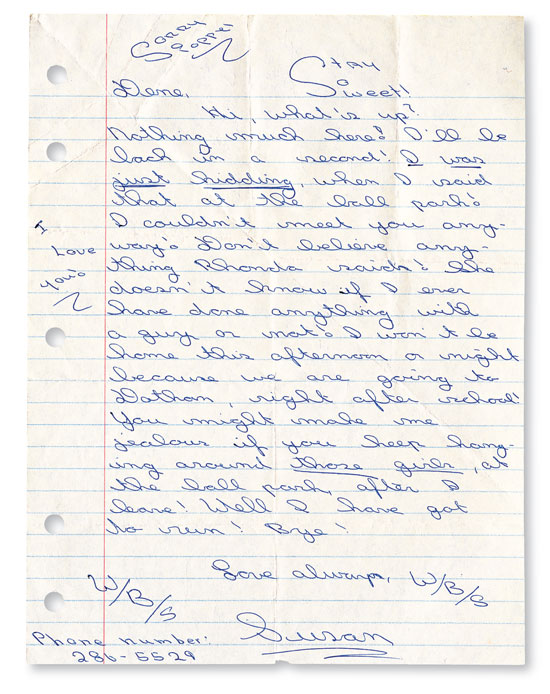 Sorry
Sloppy!
Stay
So
Sweet!
Dene,
Hi, what's up?
Nothing much here! I'll be
back in a second! I was
just kidding, when I said
that at the ball park!
I couldn't meet you any-
way! Don't believe any-
thing Rhonda said! She
doesn't know if I ever
have done anything with
a guy or not! I won't be
home this afternoon or night
because we are going to
Dothan, right after school!
You might make me
jealous if you keep hang-
ing around those girls, at
the ball park, after I
leave! Well I have got
to run! Bye!
I
Love
You!
Love always, W/B/S
W/B/S
Susan
Phone number:
286-5529